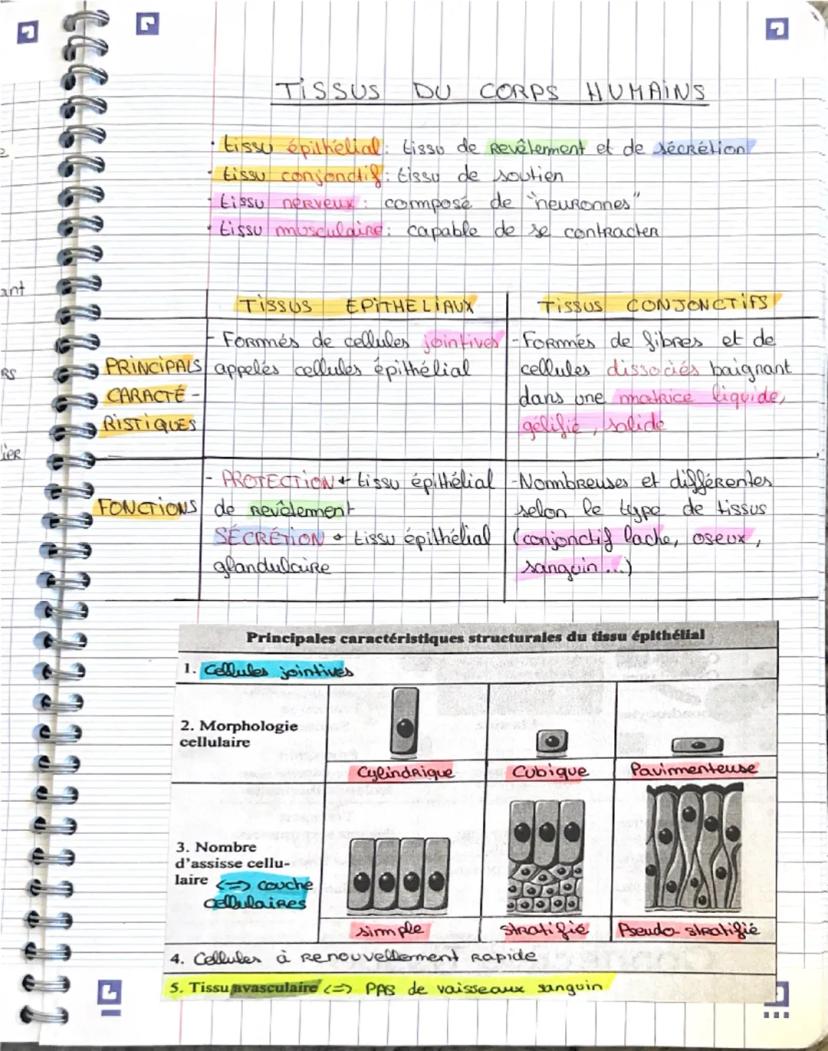 TISSUS DU CORPS HUMAINS
• tissu épithélial : tissu de revêtement et de sécrétion
• tissu conjonctif : tissu de soutien
• tissu nerveux : composé de "neuronnes"
• tissu musculaire : capable de se contracter
ant
RS
lier
TISSUS EPITHELIAUX
TISSUS CONJONCTIFS
PRINCIPALS
CARACTÉ-
RISTIQUES
- Formés de cellules jointives
appelés cellules épithélial
- Formés de fibres et de
cellules dissociés baignant
dans une matrice liquide,
gélifié, solide
FONCTIONS
- PROTECTION → tissu épithélial
de revêtement
SÉCRÉTION → tissu épithélial
glandulaire
- Nombreuses et différentes
selon le type de tissus
(conjonctif lache, oseux,
sanguin...)
Principales caractéristiques structurales du tissu épithélial
1. Cellules jointives
2. Morphologie
cellulaire
Cylindrique
Cubique
Pavimenteuse
3. Nombre
d'assisse cellu-
laire <=> couche
cellulaires
simple
stratifié
Pseudo-stratifié
4. Cellules à renouvellement rapide
5. Tissu avasculaire <=> PAS de vaisseaux sanguin